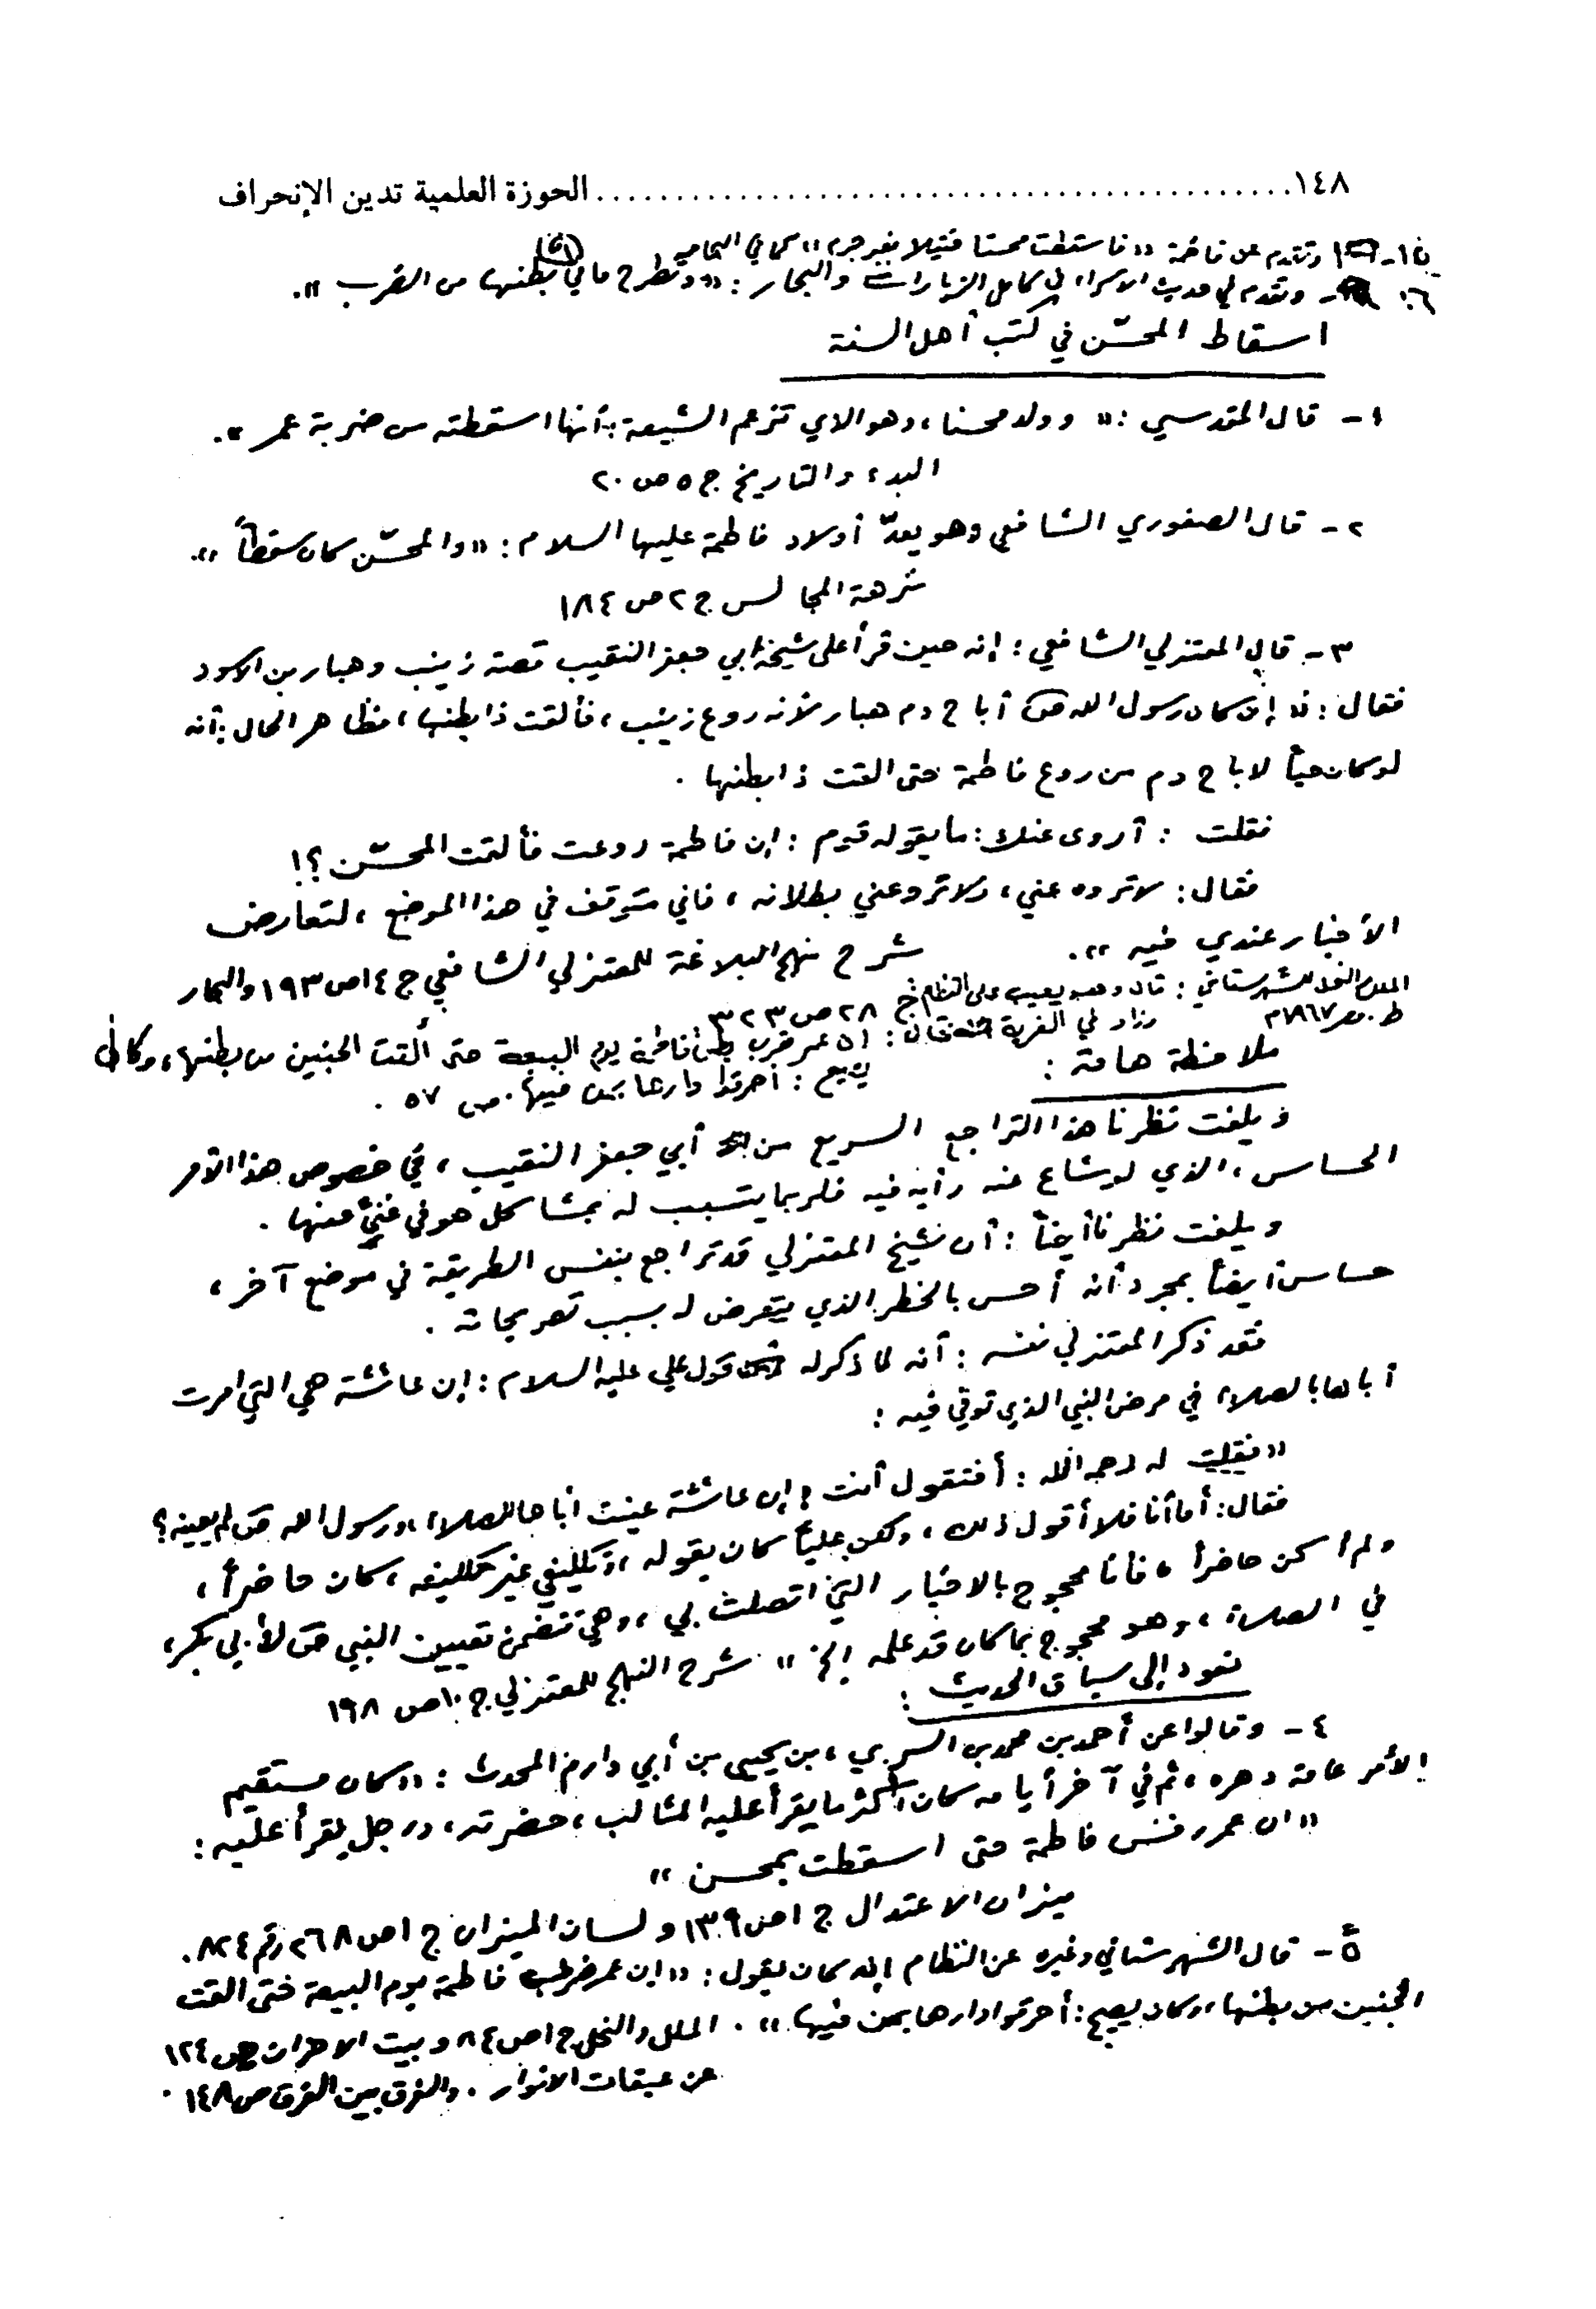 ١٤٨ ............................................ الحوزة العلمية تدين الإنحراف
١٥- وتقدم عن فاطمة «فاسقطت محسنا قتيلا بغير جرم» كما في البحار
١٦- وتقدم في حديث الاسراء في كامل الزيارات والبحار : «وتطرح ما في بطنها من الضرب».
اسقاط المحسّن في كتب أهل السنة
١- قال المقدسي : « وولد محسنا، وهو الذي تزعم الشيعة: أنها اسقطته من ضربة عمر ».
البدء والتاريخ ج ٥ ص ٢٠
٢- قال الصفوري الشافعي وهو يعدّ أولاد فاطمة عليها السلام : « والمحسّن كان سقطاً ».
نزهة المجالس ج ٢ ص ١٨٤
٣- قال المعتزلي الشافعي : إنه حين قرأ على شيخه أبي جعفر النقيب قصة زينب وهبار بن الاسود
فقال : « إن كان رسول الله ص أباح دم هبار لأنه روع زينب ، فألقت ذا بطنها، فظاهر الحال: أنه
لو كان حياً لاباح دم من روع فاطمة حتى القت ذا بطنها .
فقلت : أروى عنك: ما يقوله قوم : إن فاطمة روعت فألقت المحسّن ؟!
فقال : لا تروه عني ، ولا ترو عني بطلانه ، فاني متوقف في هذا الموضع ، لتعارض
الأخبار عندي فيه ». شرح نهج البلاغة للمعتزلي الشافعي ج ١٤ ص ١٩٣ والبحار
ج ٢٨ ص ٣٢٣
الملل والنحل للشهرستاني : قال وهو يعيب على النظام
ط. مصر ١٩٦٧م وزاد في الفرية فقال : ان عمر ضرب بطن فاطمة يوم البيعة حتى ألقت الجنين من بطنها، وكان
يصيح : أحرقوا دارها بمن فيها. ص ٥٧ .
ملاحظة هامة :
ويلفت نظرنا هذا التراجع السريع من أبي جعفر النقيب ، في خصوص هذا الأمر
الحساس ، الذي لو شاع عنه رأيه فيه فلربما يتسبب له بمشاكل هو في غنىً عنها .
ويلفت نظرنا أيضاً : أن شيخ المعتزلي قد تراجع بنفس الطريقة في موضع آخر ،
حساس أيضاً بمجرد أنه أحس بالخطر الذي يتعرض له بسبب تصريحاته .
فقد ذكر المعتزلي نفسه : أنه لما ذكر له قول علي عليه السلام : إن عائشة هي التي امرت
أباها بالصلاة في مرض النبي الذي توفي فيه :
« فقلت له رحمه الله : أفتقول أنت : إن عائشة عينت أباها للصلاة ، ورسول الله ص لم يعينه ؟
فقال : أما أنا فلا أقول ذلك ، ولكن علياً كان يقوله ، وتكليفي غير تكليفه ، كان حاضراً ،
ولم أكن حاضراً ، فأنا محجوج بالاخبار التي اتصلت بي ، وهي تتضمن تعيين النبي ص لأبي بكر ،
في الصلاة ، وهو محجوج بما كان قد علمه الخ » شرح النهج للمعتزلي ج ١٠ ص ١٩٨
نعود إلى سياق الحديث :
٤- وقالوا عن أحمد بن محمد بن السري ، بن يحيى بن أبي دارم المحدث : « كان مستقيم
الأمر عامة دهره ، ثم في آخر أيامه كان أكثر ما يقرأ عليه المثالب ، حضرته ، ورجل يقرأ عليه :
« ان عمر رفس فاطمة حتى اسقطت بمحسن »
ميزان الاعتدال ج ١ ص ١٣٩ ولسان الميزان ج ١ ص ٢٦٨ رقم ٨٢٤ .
٥- قال الشهرستاني وغيره عن النظام إنه كان يقول : « ان عمر ضرب فاطمة يوم البيعة حتى القت
الجنين من بطنها ، وكان يصيح : أحرقوا دارها بمن فيها » . الملل والنحل ج ١ ص ٨٤ وبيت الاحزان ص ١٢٤
عن عبقات الانوار . والفرق بين الفرق ص ١٤٨ .